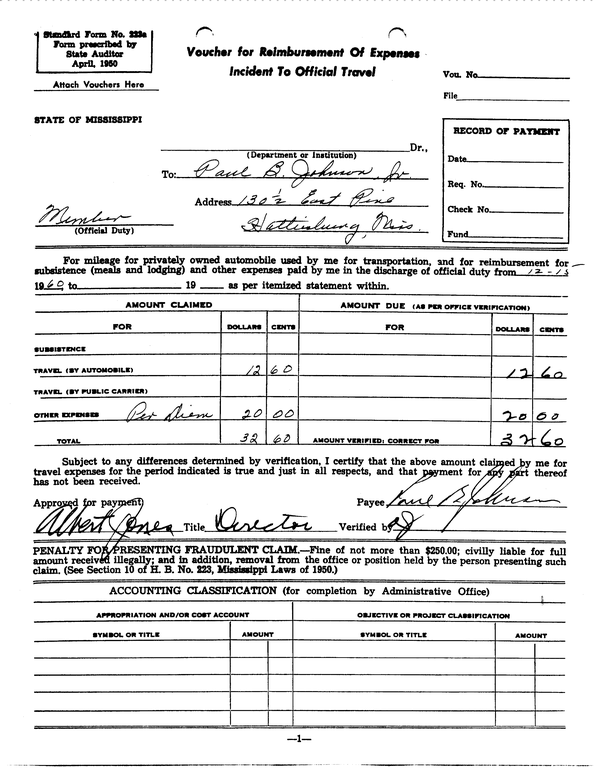 Standard Form No. 223a
Form prescribed by
State Auditor
April, 1950
Attach Vouchers Here
Voucher for Reimbursement Of Expenses
Incident To Official Travel
Vou. No.
File
STATE OF MISSISSIPPI
RECORD OF PAYMENT
Date
Req. No.
Check No.
Fund
Dr.,
(Department or Institution)
To: Paul B. Johnson, Jr.
Address 130½ East Pine
Hattiesburg, Miss.
Member
(Official Duty)
For mileage for privately owned automobile used by me for transportation, and for reimbursement for
subsistence (meals and lodging) and other expenses paid by me in the discharge of official duty from 12-13
1960 to 19 as per itemized statement within.
AMOUNT CLAIMED AMOUNT DUE (AS PER OFFICE VERIFICATION)
FOR DOLLARS CENTS FOR DOLLARS CENTS
SUBSISTENCE
TRAVEL (BY AUTOMOBILE) 12 60 12 60
TRAVEL (BY PUBLIC CARRIER)
OTHER EXPENSES Per Diem 20 00 20 00
TOTAL 32 60 AMOUNT VERIFIED: CORRECT FOR 32 60
Subject to any differences determined by verification, I certify that the above amount claimed by me for
travel expenses for the period indicated is true and just in all respects, and that payment for any part thereof
has not been received.
Approved for payment) Payee Paul B Johnson
Albert Jones Title Director Verified by AJ
PENALTY FOR PRESENTING FRAUDULENT CLAIM.—Fine of not more than $250.00; civilly liable for full
amount received illegally; and in addition, removal from the office or position held by the person presenting such
claim. (See Section 10 of H. B. No. 223, Mississippi Laws of 1950.)
ACCOUNTING CLASSIFICATION (for completion by Administrative Office)
APPROPRIATION AND/OR COST ACCOUNT OBJECTIVE OR PROJECT CLASSIFICATION
SYMBOL OR TITLE AMOUNT SYMBOL OR TITLE AMOUNT
—1—